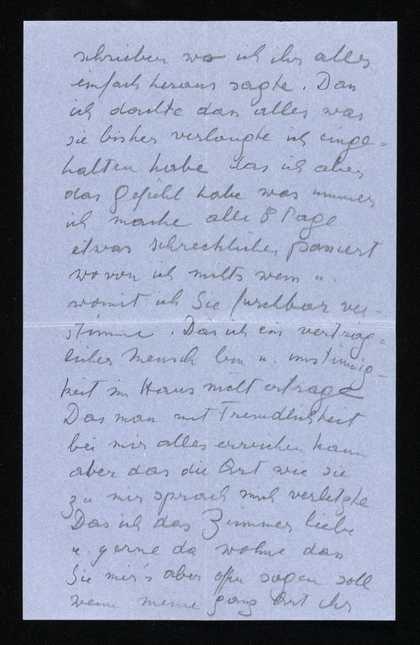 schrieben wo ich ihr alles
einfach heraus sagte. Das
ich dachte das alles was
sie bisher verlangte ich einge-
halten habe das ich aber
das Gefühl habe was immer
ich mache alle 8 Tage
etwas schreckliches passiert
wovon ich nichts weis u.
womit ich Sie furchtbar ver-
stimme. Das ich ein verträg-
licher Mensch bin u. unstimmig-
keit im Haus nicht ertrage
Das man mit Freundlichkeit
bei mir alles erreichen kann
aber das die Art wie sie
zu mir sprach mich verletzte
Das ich das Zimmer liebe
u. gerne da wohne das
Sie mir's aber offen sagen soll
wenn meine ganz Art ihr